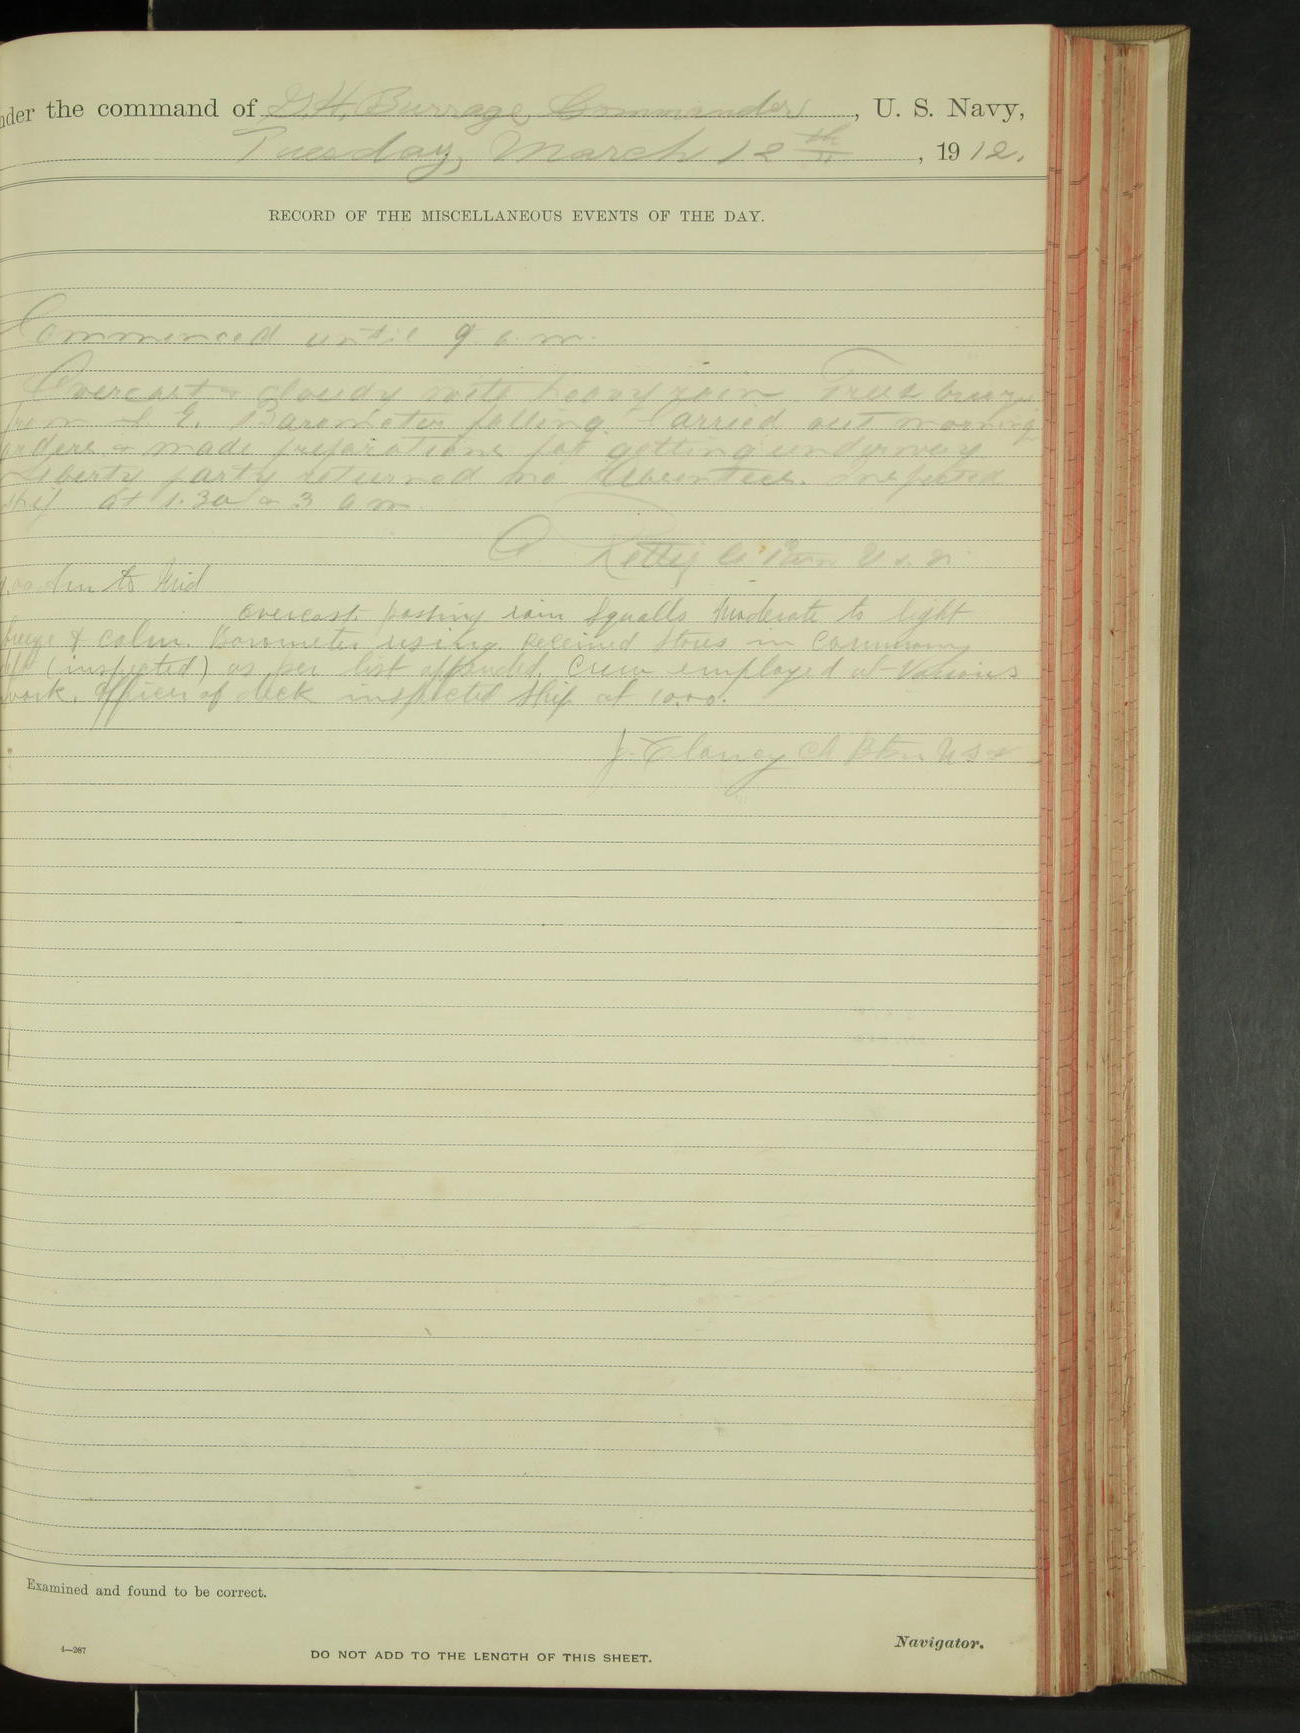 nder the command of G. H. Burrage, Commander, U. S. Navy,
Tuesday, March 12th, 1912.
RECORD OF THE MISCELLANEOUS EVENTS OF THE DAY.
Commenced until 9 a.m.
Overcast & cloudy with heavy rain Fresh breeze
from S. E. Barometer falling. Carried out morning
orders & made preparations for getting underway
Liberty party returned no Absentees. Inspected
ship at 1.30 & 3 a m.
U.S.N.
to Mid
Overcast. passing rain squalls Moderate to light
breeze & calm. Barometer rising. Received Stores in
(inspected) as per list appended. Crew employed at Various
work. Officer of deck inspected ship at 10.00.
J. Clancy Ch Btsn U S N
Examined and found to be correct.
Navigator.
4—267
DO NOT ADD TO THE LENGTH OF THIS SHEET.